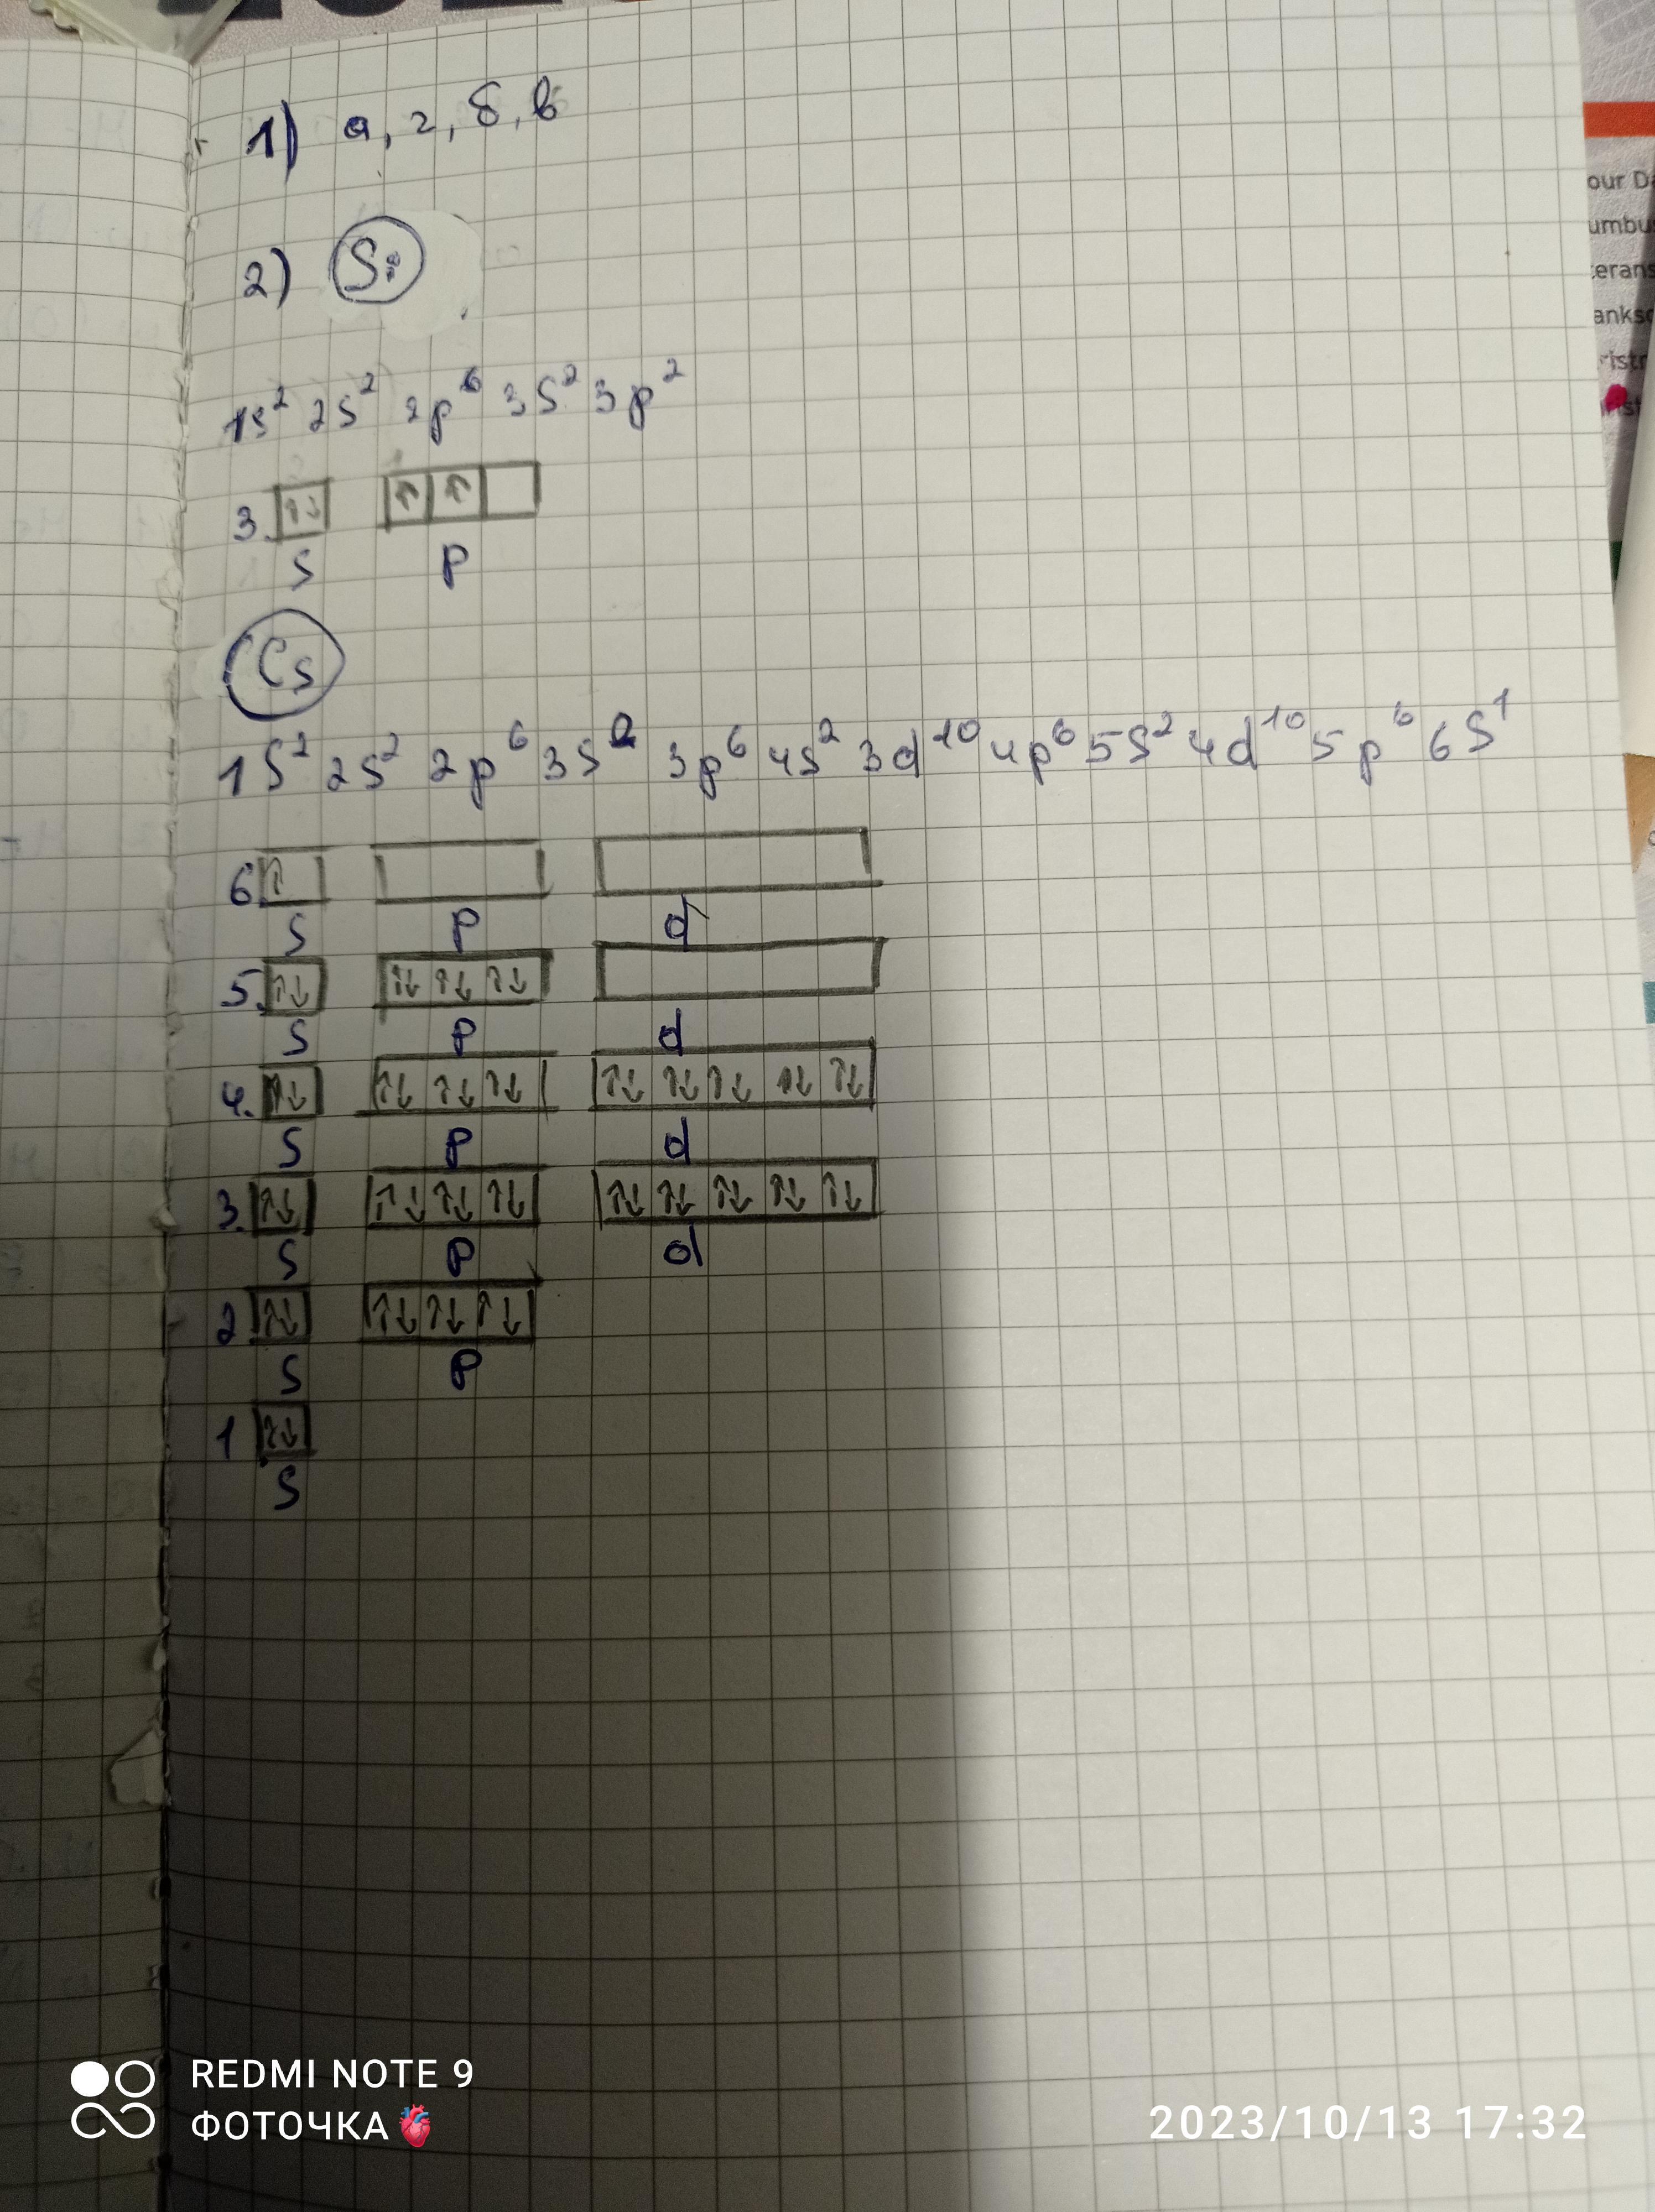 1) а, г, б, в
2) Si
1s² 2s² 2p⁶ 3s² 3p²
3. ↑↓ ↑ ↑
s p
Cs
1s² 2s² 2p⁶ 3s² 3p⁶ 4s² 3d¹⁰ 4p⁶ 5s² 4d¹⁰ 5p⁶ 6s¹
6 ↑
s p d
5. ↑↓ ↑↓ ↑↓ ↑↓
s p d
4. ↑↓ ↑↓ ↑↓ ↑↓ ↑↓ ↑↓ ↑↓ ↑↓ ↑↓
s p d
3. ↑↓ ↑↓ ↑↓ ↑↓ ↑↓ ↑↓ ↑↓ ↑↓ ↑↓
s p d
2 ↑↓ ↑↓ ↑↓ ↑↓
s p
1 ↑↓
s
our Da
umbus
terans
anksg
ristm
REDMI NOTE 9
ФОТОЧКА🫀
2023/10/13 17:32